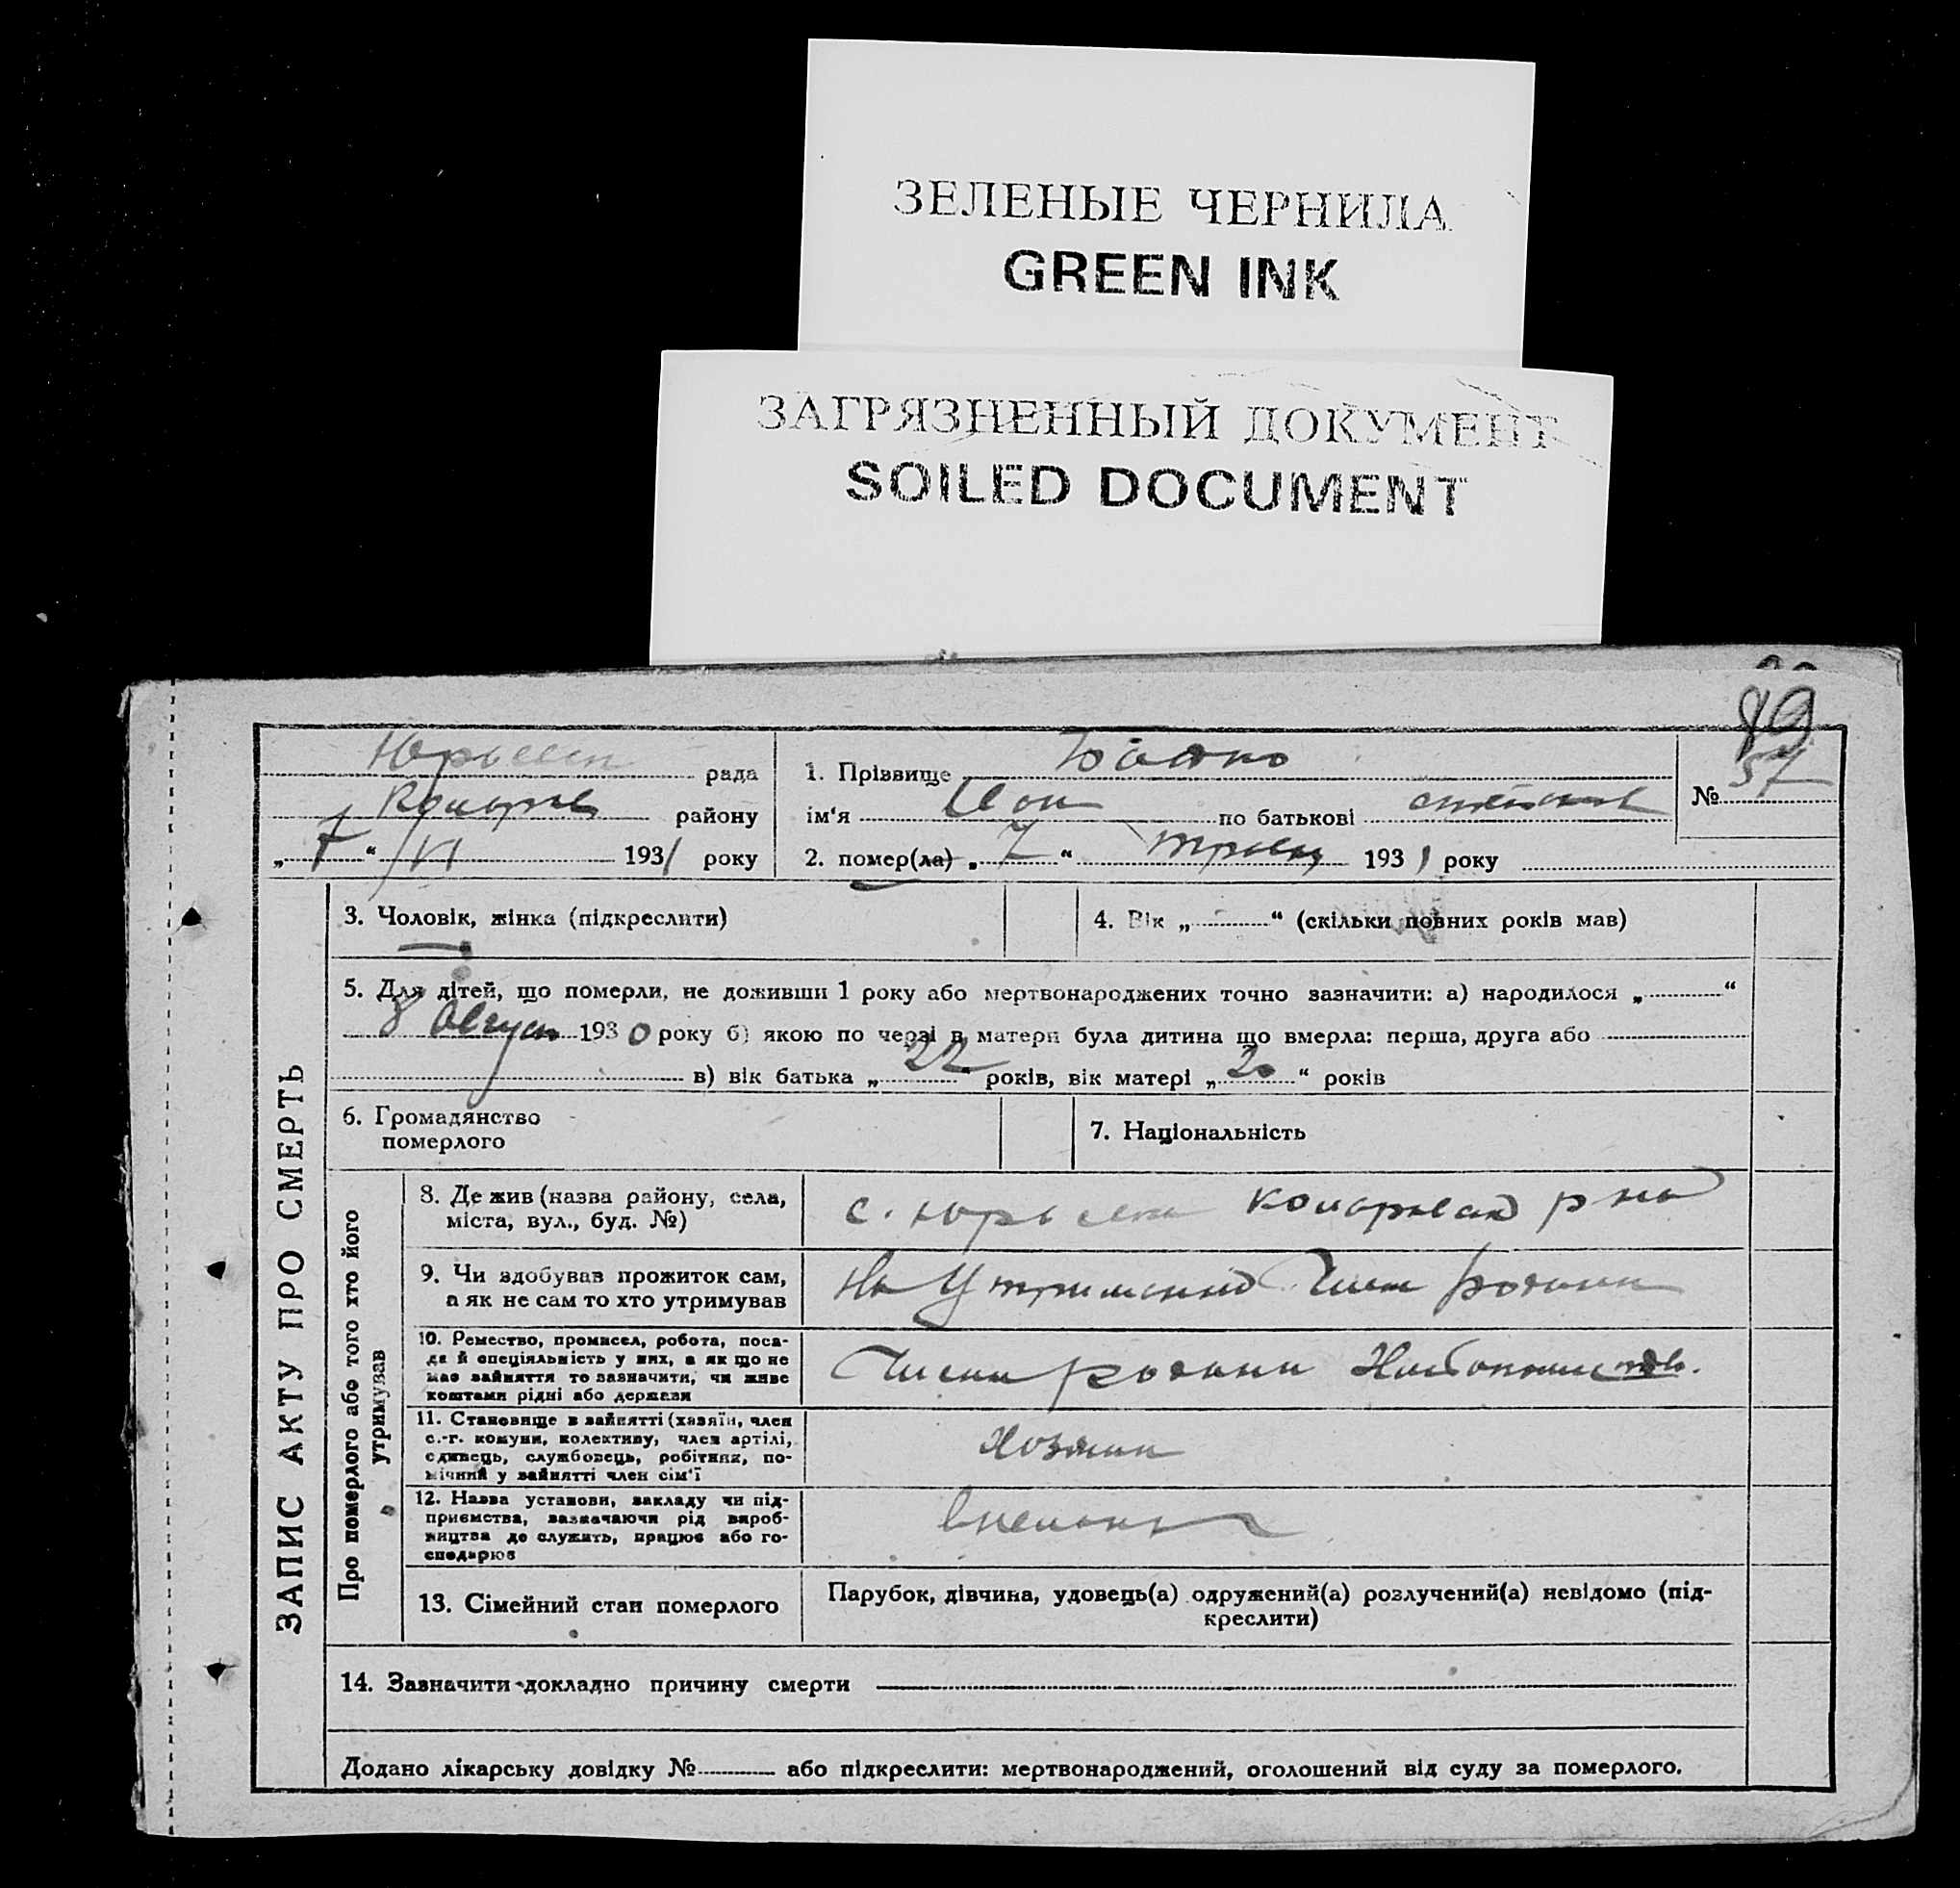 ЗЕЛЕНЫЕ ЧЕРНИЛА
GREEN INK
ЗАГРЯЗНЕННЫЙ ДОКУМЕНТ
SOILED DOCUMENT
89
рада
району
„ 7 “ /VI 1931 року
1. Прізвище
ім‘я по батькові
2. помер(ла) „ 7 “ 1931 року
№ 57
ЗАПИС АКТУ ПРО СМЕРТЬ
3. Чоловік, жінка (підкреслити)
4. Вік „ “ (скільки повних років мав)
5. Для дітей, що померли, не доживши 1 року або мертвонароджених точно зазначити: а) народилося „ “
8 1930 року б) якою по черзі в матери була дитина що вмерла: перша, друга або
в) вік батька „ 22 “ років, вік матері „ 20 “ років
6. Громадянство
померлого
7. Національність
Про померлого або того хто його
утримував
8. Де жив (назва району, села,
міста, вул., буд. №)
с.
9. Чи здобував прожиток сам,
а як не сам то хто утримував
На
10. Ремество, промисел, робота, поса-
да й спеціяльність у них, а як що не
має зайняття то зазначити, чи живе
коштами рідні або держави
11. Становище в зайнятті (хазяїн, член
с.-г. комуни, колективу, член артілі,
єдинець, службовець, робітник, по-
мічний у зайнятті член сім‘ї
Хозяин
12. Назва установи, закладу чи під-
приємства, зазначаючи рід вироб-
ництва де служить, працює або го-
сподарює
13. Сімейний стан померлого
Парубок, дівчина, удовець(а) одружений(а) розлучений(а) невідомо (під-
креслити)
14. Зазначити докладно причину смерти
Додано лікарську довідку № або підкреслити: мертвонароджений, оголошений від суду за померлого.